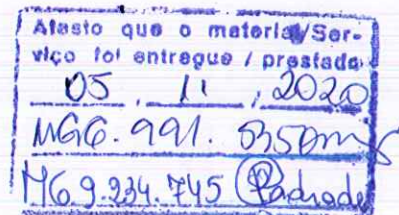 Atesto que o material/Ser-
viço foi entregue / prestado
05 , 11 , 2020
MG6.991.535
MG 9.934.745 Padrade